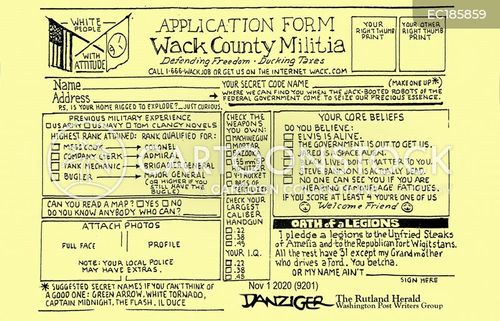 EC185859
WHITE PEOPLE
WITH ATTITUDE
APPLICATION FORM
Wack County Militia
Defending Freedom - Ducking Taxes
CALL 1-666-WACK JOB OR GET US ON THE INTERNET WACK.COM
YOUR RIGHT THUMB PRINT
YOUR OTHER RIGHT THUMB PRINT
Name
YOUR SECRET CODE NAME
(MAKE ONE UP*)
Address
WHERE WE CAN FIND YOU WHEN THE JACK-BOOTED ROBOTS OF THE
FEDERAL GOVERNMENT COME TO SEIZE OUR PRECIOUS ESSENCE.
P.S. IS YOUR HOME RIGGED TO EXPLODE? JUST CURIOUS.
PREVIOUS MILITARY EXPERIENCE
US ARMY US NAVY TOM CLANCY NOVELS
HIGHEST RANK ATTAINED: RANK QUALIFIED FOR:
MESS COOK COLONEL
COMPANY CLERK ADMIRAL
TANK MECHANIC BRIGADIER GENERAL
BUGLER MAJOR GENERAL
(OR HIGHER IF YOU STILL HAVE THE BUGLE)
CAN YOU READ A MAP? YES NO
DO YOU KNOW ANYBODY WHO CAN?
ATTACH PHOTOS
FULL FACE
PROFILE
NOTE: YOUR LOCAL POLICE
MAY HAVE EXTRAS.
CHECK THE WEAPONS YOU OWN:
MACHINEGUN
MORTAR
BAZOOKA
TANK
SCUD
V-1 ROCKET
V-2 ROCKET
CHECK YOUR LARGEST CALIBER HANDGUN
.22
.38
.45
YOUR I.Q.
.22
.38
.45
YOUR CORE BELIEFS
DO YOU BELIEVE:
ELVIS IS ALIVE.
THE GOVERNMENT IS OUT TO GET US.
BLACK LIVES DON'T MATTER TO YOU.
STEVE BANNON IS ACTUALLY DEAD.
NO ONE CAN SEE YOU IF YOU ARE
WEARING CAMOUFLAGE FATIGUES.
IF YOU SCORE AT LEAST 4 YOU'RE ONE OF US
Welcome Friend
OATH of a LEGIONS
I pledge a legions to the Unfried Steaks
of Amelia and to the Republican Fort Wigitstans.
All the rest have 31 except my Grand mother
who drives a Ford. You betcha.
OR MY NAME AIN'T
SIGN HERE
* SUGGESTED SECRET NAMES IF YOU CAN'T THINK OF
A GOOD ONE: GREEN ARROW. WHITE TORNADO,
CAPTAIN MIDNIGHT, THE FLASH, IL DUCE
Nov 1 2020 (9201)
DANZIGER
The Rutland Herald
Washington Post Writers Group